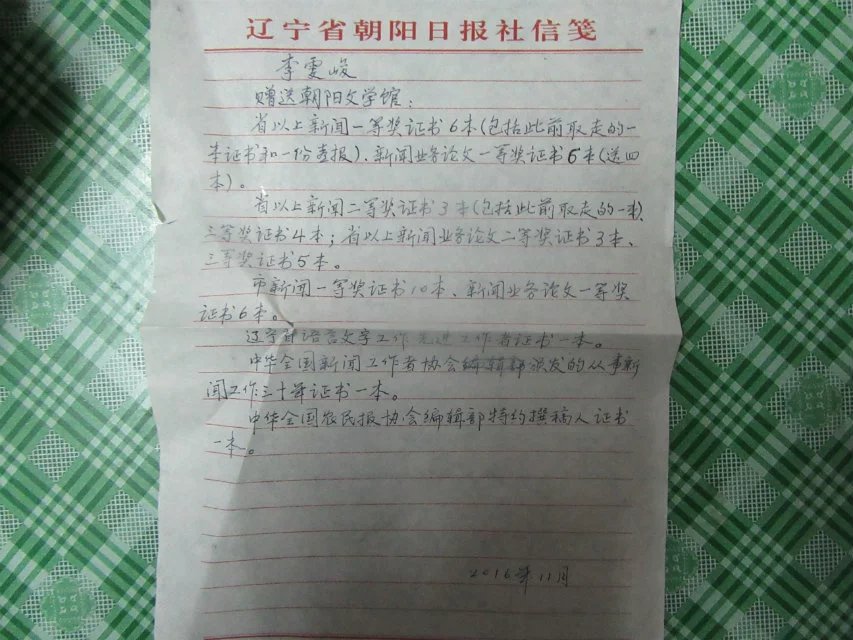 辽宁省朝阳日报社信笺
李雯峻
赠送朝阳文学馆：
省以上新闻一等奖证书6本(包括此前取走的一
本证书和一份喜报)、新闻业务论文一等奖证书6本(送四
本)。
省以上新闻二等奖证书3本(包括此前取走的一本)
三等奖证书4本；省以上新闻业务论文二等奖证书3本、
三等奖证书5本。
市新闻一等奖证书10本、新闻业务论文一等奖
证书6本。
辽宁省语言文字工作先进工作者证书一本。
中华全国新闻工作者协会编辑部颁发的从事新
闻工作三十年证书一本。
中华全国农民报协会编辑部特约撰稿人证书
一本。
2016年11月